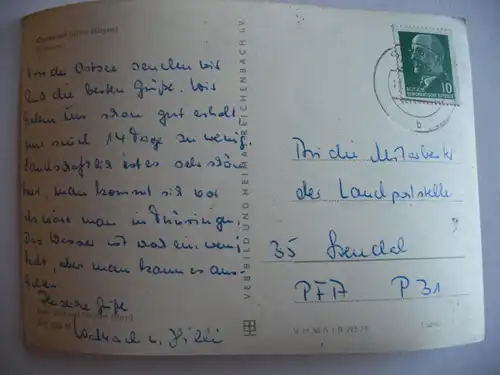 Von der Ostsee senden wir
Euch die besten Grüße. Wir
haben uns schon gut erholt
nur sind 14 Tage zu wenig.
Landschaftlich ist es sehr schön
hier, man kommt sich vor
als wäre man in Thüringen.
Das Wasser ist zwar ein wenig
kalt, aber man kann es aus-
halten.
Herzliche Grüße
u. Hilli
VEB BILD UND HEIMAT REICHENBACH i. V.
DEUTSCHE
DEMOKRATISCHE REPUBLIK
10
An die Mitarbeiter
der Landpoststelle
35 Stendal
PFA P 31